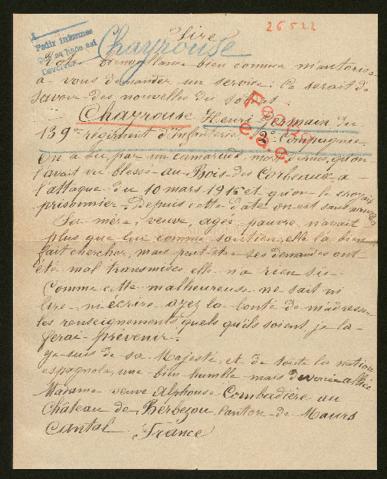 26522
Sire
Chayrouse
Votre bienveillance bien connue m'autorise
à vous demander un service. Ce serait de
savoir des nouvelles du soldat
Chayrouse Henri Germain du
139e régiment d'infanterie 2e compagnie
On a su par un camarade, mort depuis, qu'on
l'avait vu blessé au Bois des Corbeaux à
l'attaque du 10 mars 1916 et qu'on le croyait
prisonnier. Depuis cette date on est sans nouvelles
Sa mère, veuve, agée, pauvre, n'avait
plus que lui comme soutien, elle l'a bien
fait chercher, mais peut-être ses demandes ont
été mal transmises elle n'a reçu rien
Comme cette malheureuse ne sait ni
lire ni écrire, ayez la bonté de m'adresser
les renseignements quels qu'ils soient je la
ferai prévenir.
Je suis de sa Majesté et de toute la nation
espagnole une bien humble mais dévouée alliée
Madame veuve Alphonse Combadière au
Château de Berbezou canton de Maurs
Cantal France